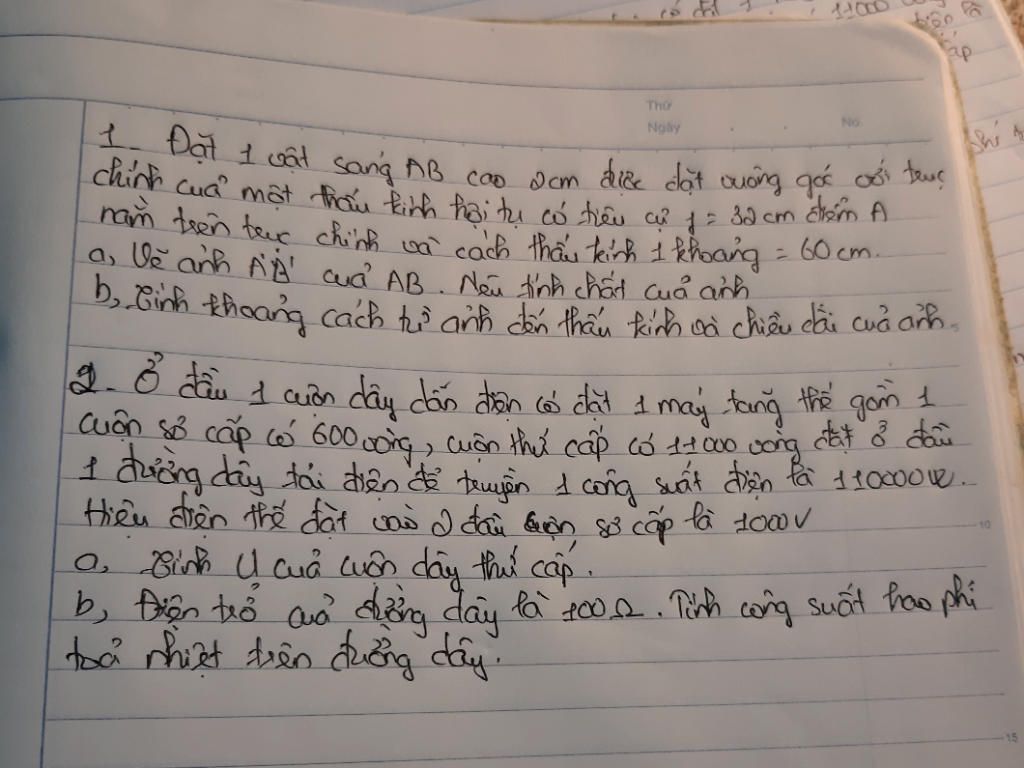 có đặt 1
11000
điện là
cấp
Thứ
Ngày
No
1- Đặt 1 vật sáng AB cao 2cm được đặt vuông góc với trục
chính cuả một thấu kính hội tụ có tiêu cự f = 32cm điểm A
nằm trên trục chính và cách thấu kính 1 khoảng = 60cm.
a, Vẽ ảnh A'B' cuả AB. Nêu tính chất cuả ảnh
b, Tính khoảng cách từ ảnh đến thấu kính và chiều dài cuả ảnh.
2- Ở đầu 1 cuộn dây dẫn điện có đặt 1 máy tăng thế gồm 1
cuộn sơ cấp có 600 vòng, cuộn thứ cấp có 11000 vòng đặt ở đầu
1 đường dây tải điện để truyền 1 công suất điện là 110000W.
Hiệu điện thế đặt vào 2 đầu cuộn sơ cấp là 1000V
10
a, Tính U cuả cuộn dây thứ cấp.
b, Điện trở cuả đường dây là 100Ω. Tính công suất hao phí
toả nhiệt trên đường dây.
15